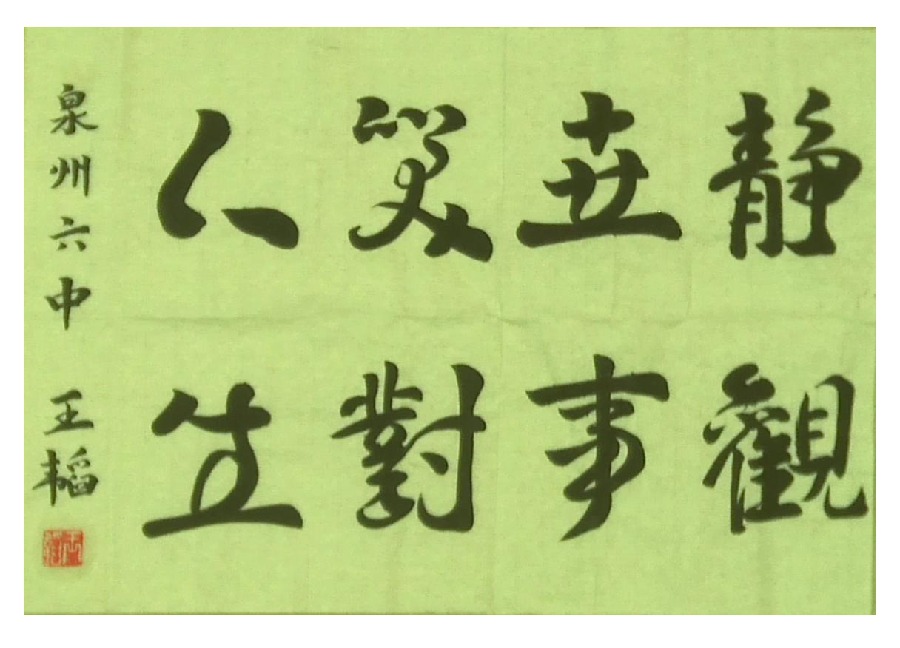 靜觀
世事
笑對
人生
泉州六中 王韬